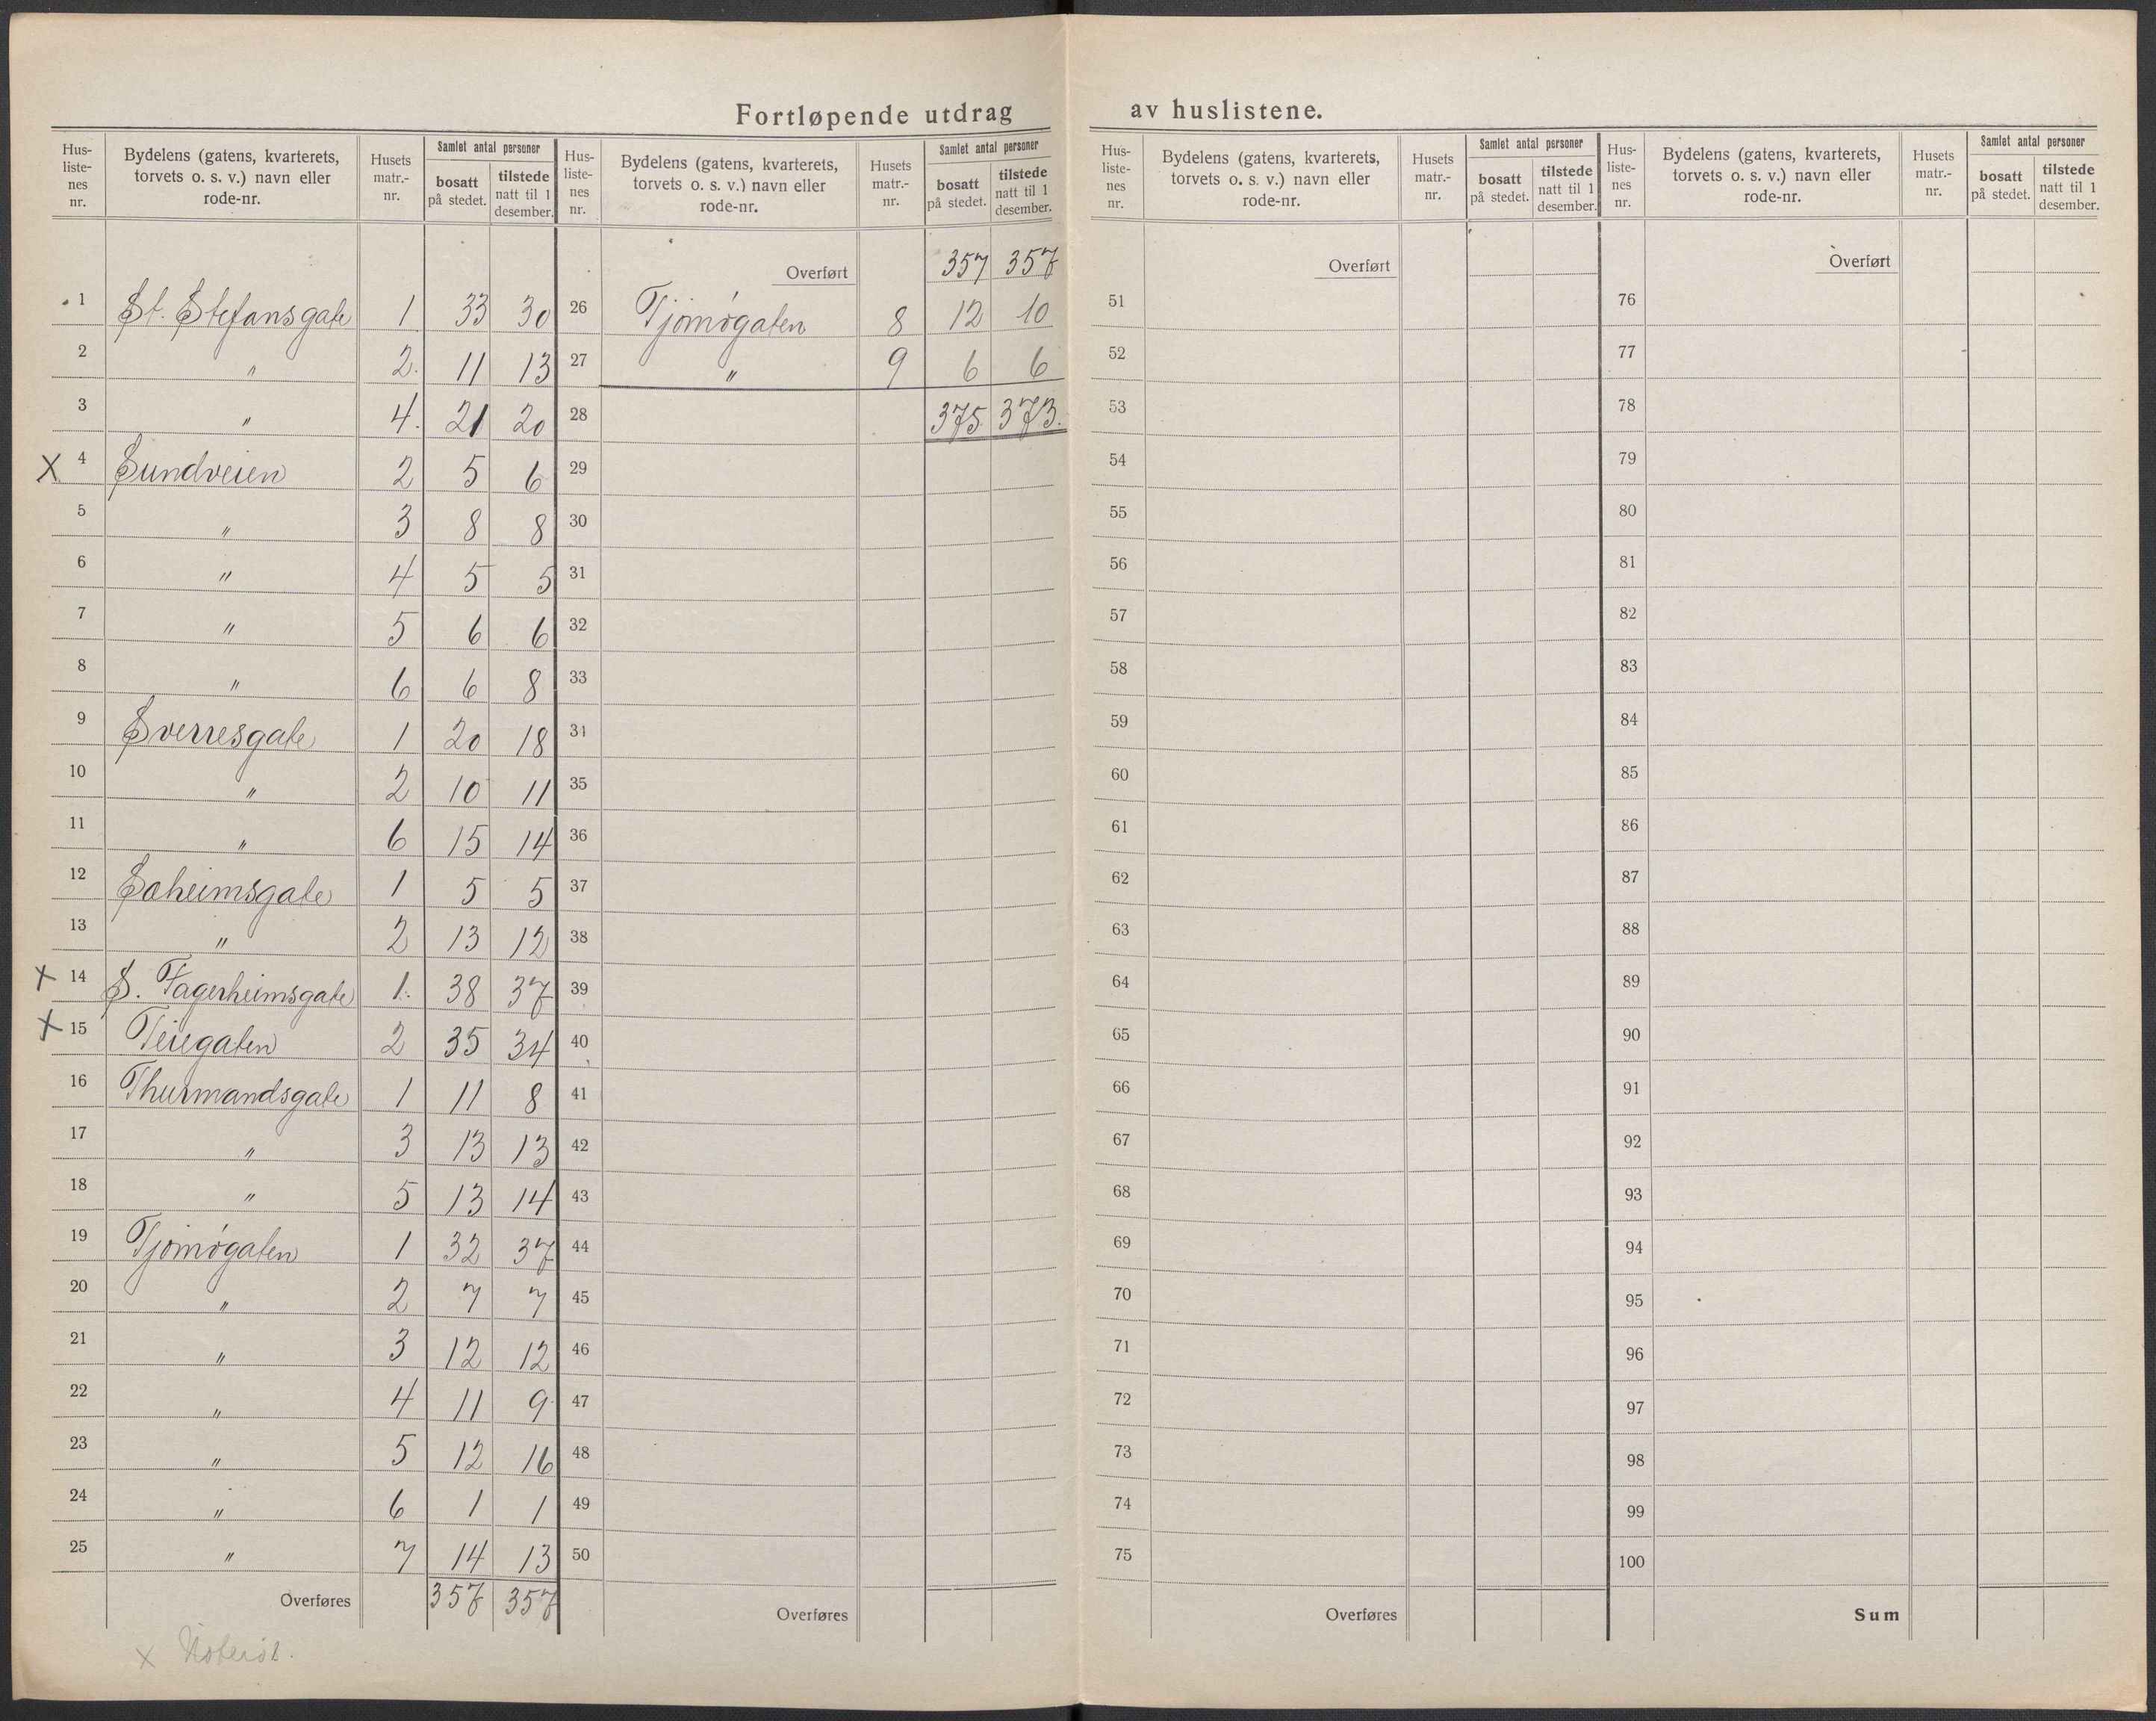 Fortløpende utdrag av huslistene.
Hus-liste-nes nr. | Bydelens (gatens, kvarterets, torvets o. s. v.) navn eller rode-nr. | Husets matr.-nr. | Samlet antal personer bosatt på stedet. | tilstede natt til 1 desember.
1 St. Stefansgate 1 33 30
2 " 2. 11 13
3 " 4. 21 20
X 4 Sundveien 2 5 6
5 " 3 8 8
6 " 4 5 5
7 " 5 6 6
8 " 6 6 8
9 Sverresgate 1 20 18
10 " 2 10 11
11 " 6 15 14
12 Soheimsgate 1 5 5
13 " 2 13 12
X 14 S. Fagerheimsgate 1. 38 37
X 15 Teiegaten 2 35 34
16 Thurmandsgate 1 11 8
17 " 3 13 13
18 " 5 13 14
19 Tjømøgaten 1 32 37
20 " 2 7 7
21 " 3 12 12
22 " 4 11 9
23 " 5 12 16
24 " 6 1 1
25 " 7 14 13
Overføres 357 357
X
Hus-liste-nes nr. | Bydelens (gatens, kvarterets, torvets o. s. v.) navn eller rode-nr. | Husets matr.-nr. | Samlet antal personer bosatt på stedet. | tilstede natt til 1 desember.
Overført 357 357
26 Tjømøgaten 8 12 10
27 " 9 6 6
28 375 373.
29
30
31
32
33
34
35
36
37
38
39
40
41
42
43
44
45
46
47
48
49
50
Overføres
Hus-liste-nes nr. | Bydelens (gatens, kvarterets, torvets o. s. v.) navn eller rode-nr. | Husets matr.-nr. | Samlet antal personer bosatt på stedet. | tilstede natt til 1 desember.
Overført
51
52
53
54
55
56
57
58
59
60
61
62
63
64
65
66
67
68
69
70
71
72
73
74
75
Overføres
Hus-liste-nes nr. | Bydelens (gatens, kvarterets, torvets o. s. v.) navn eller rode-nr. | Husets matr.-nr. | Samlet antal personer bosatt på stedet. | tilstede natt til 1 desember.
Overført
76
77
78
79
80
81
82
83
84
85
86
87
88
89
90
91
92
93
94
95
96
97
98
99
100
Sum